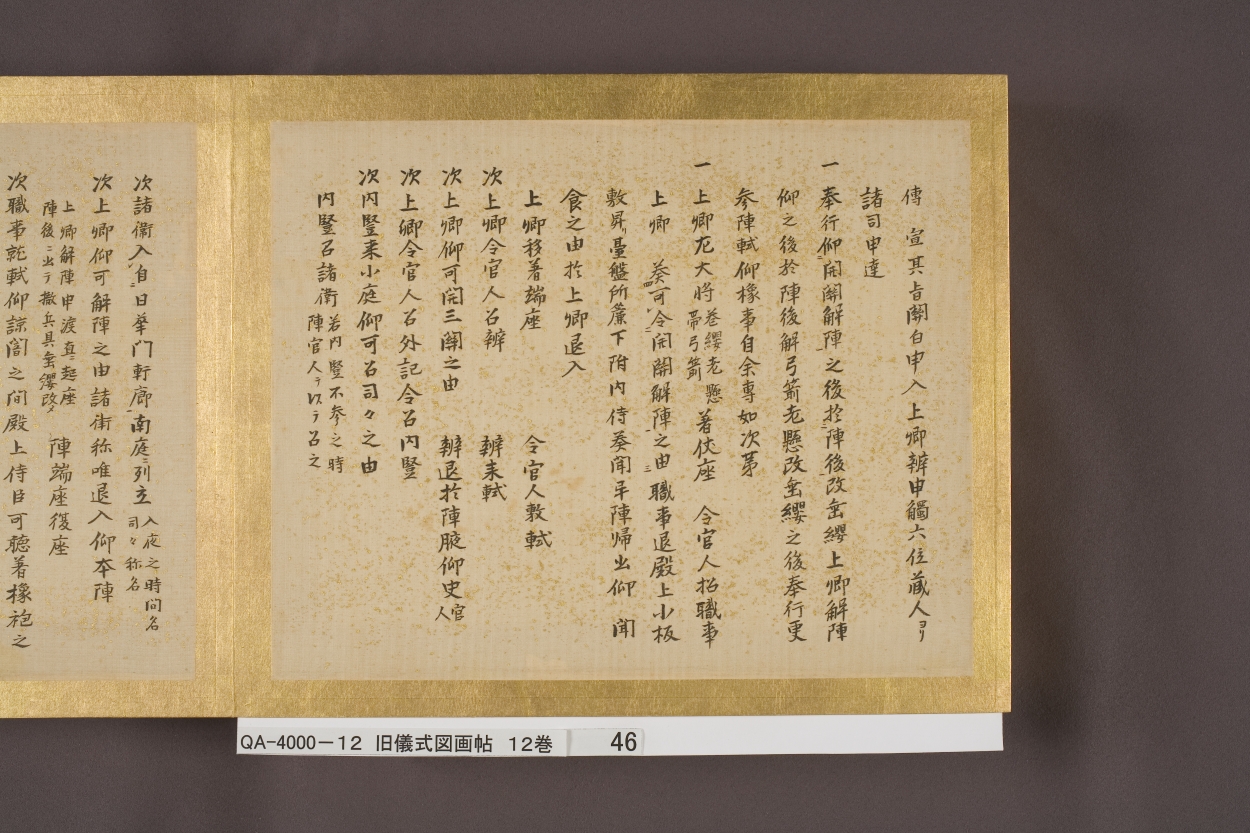 傳 宣其旨關白申入上卿辨申觸六位蔵人ヨリ
諸司申達
一 奉行仰開關解陣之後於陣後改垂纓上卿解陣
仰之後於陣後解弓箭老懸改垂纓之後奉行更
参陣軾仰橡事自余専如次第
一 上卿左大將 巻纓老懸 帯弓箭 著仗座 令官人招職事
上卿 奏可令開關解陣之由職事退殿上小板
敷昇臺盤所簾下附内侍奏聞畢陣帰出仰 聞
食之由於上卿退入
上卿移著端座 令官人敷軾
次上卿令官人召辨 辨来軾
次上卿仰可開三關之由 辨退於陣腋仰史 官人
次上卿令官人召外記令召内豎
次内豎来小庭仰可召司々之由
内豎召諸衛 若内豎不参之時 陣官人ヲ以テ召之
次諸衛入自日華門軒廊南庭ニ列立 入夜之時問名 司々称名
次上卿仰可解陣之由諸衛称唯退入仰本陣
上卿解陣申渡直ニ起座 陣後ニ出テ撤兵具垂纓改メ 陣端座復座
次職事就軾仰諒闇之間殿上侍臣可聴著橡袍之
QA-4000-12 旧儀式図画帖 12巻 46